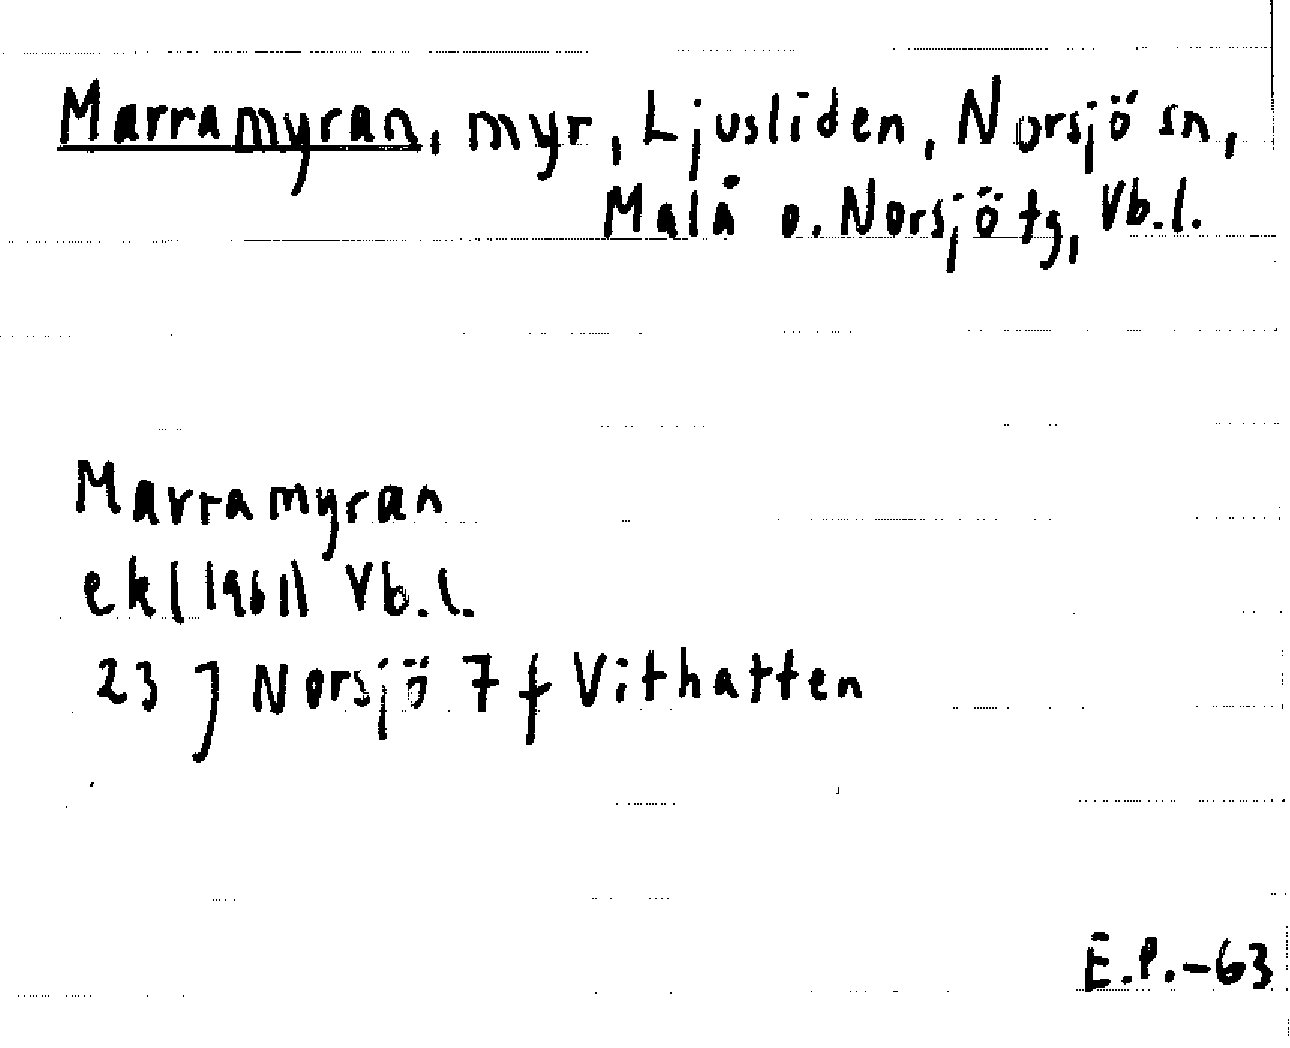 Marramyran, myr, Ljusliden, Norsjö sn,
Malå o. Norsjö tg, Vb.l.
Marramyran
ek(1961) Vb.l.
23 J Norsjö 7 f Vithatten
E.P.-63